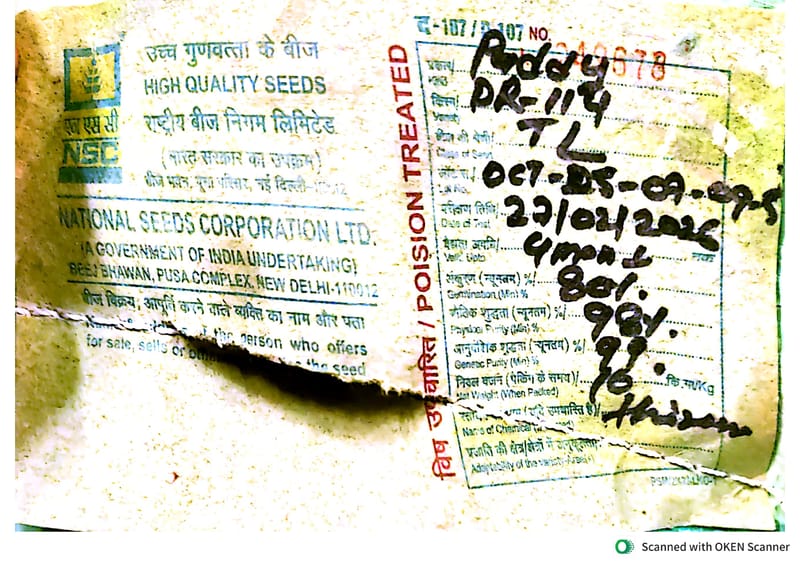 उच्च गुणवत्ता के बीज
HIGH QUALITY SEEDS
एन एस सी
NSC
राष्ट्रीय बीज निगम लिमिटेड
(भारत सरकार का उपक्रम)
बीज भवन, पूसा परिसर, नई दिल्ली-110012
NATIONAL SEEDS CORPORATION LTD.
(A GOVERNMENT OF INDIA UNDERTAKING)
BEEJ BHAWAN, PUSA COMPLEX, NEW DELHI-110012
बीज विक्रय, आपूर्ति करने वाले व्यक्ति का नाम और पता
of the person who offers
for sale, sells or the seed
विष उपचारित / POISION TREATED
NO.
Paddy
PR-114
TL
Lot No.
परीक्षण तिथि/
Date of Test
27/02/2026
Valid Upto
4 mont
अंकुरण (न्यूनतम) %/
Germination (Min) %
80%.
भौतिक शुद्धता (न्यूनतम) %/
Physical Purity (Min) %
98%.
आनुवंशिक शुद्धता (न्यूनतम) %/
Genetic Purity (Min) %
99.
निवल वजन (पैकिंग के समय)/
Net Weight (When Packed)
10
कि.ग्रा/Kg
Name of Chemical
प्रजाति की क्षेत्र/क्षेत्रों में अनुकूलता/
Adaptability of the variety
Scanned with OKEN Scanner